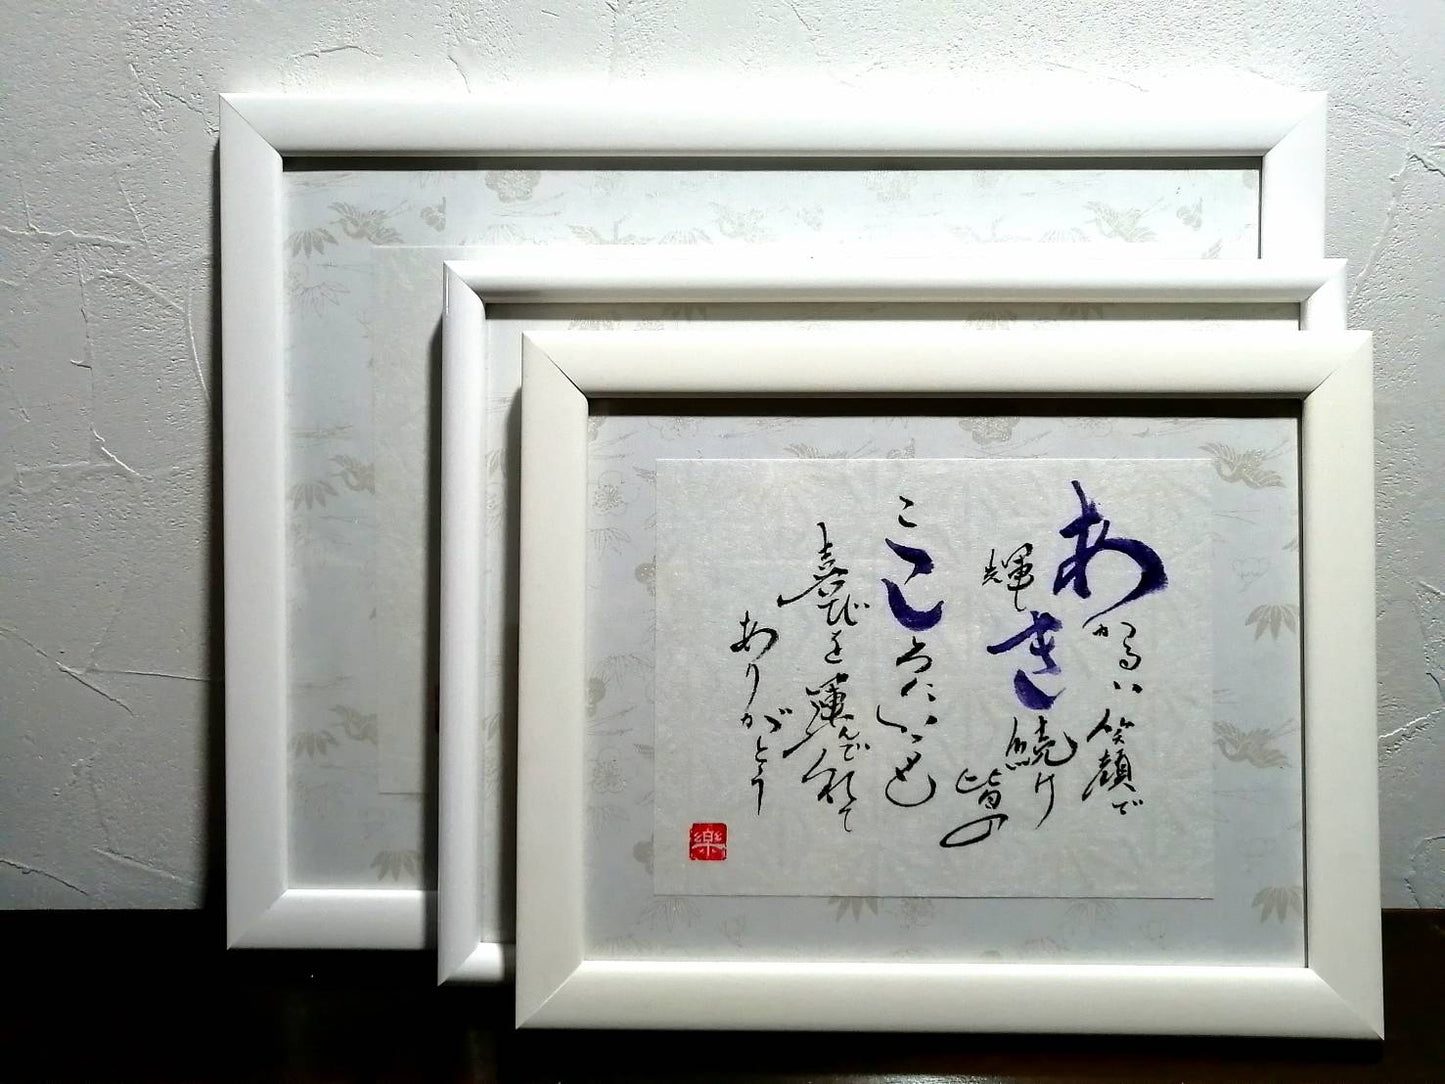 あかるい笑顔で
輝きき続け
皆の
こころにいつも
喜びを運んで
ありがとう
樂